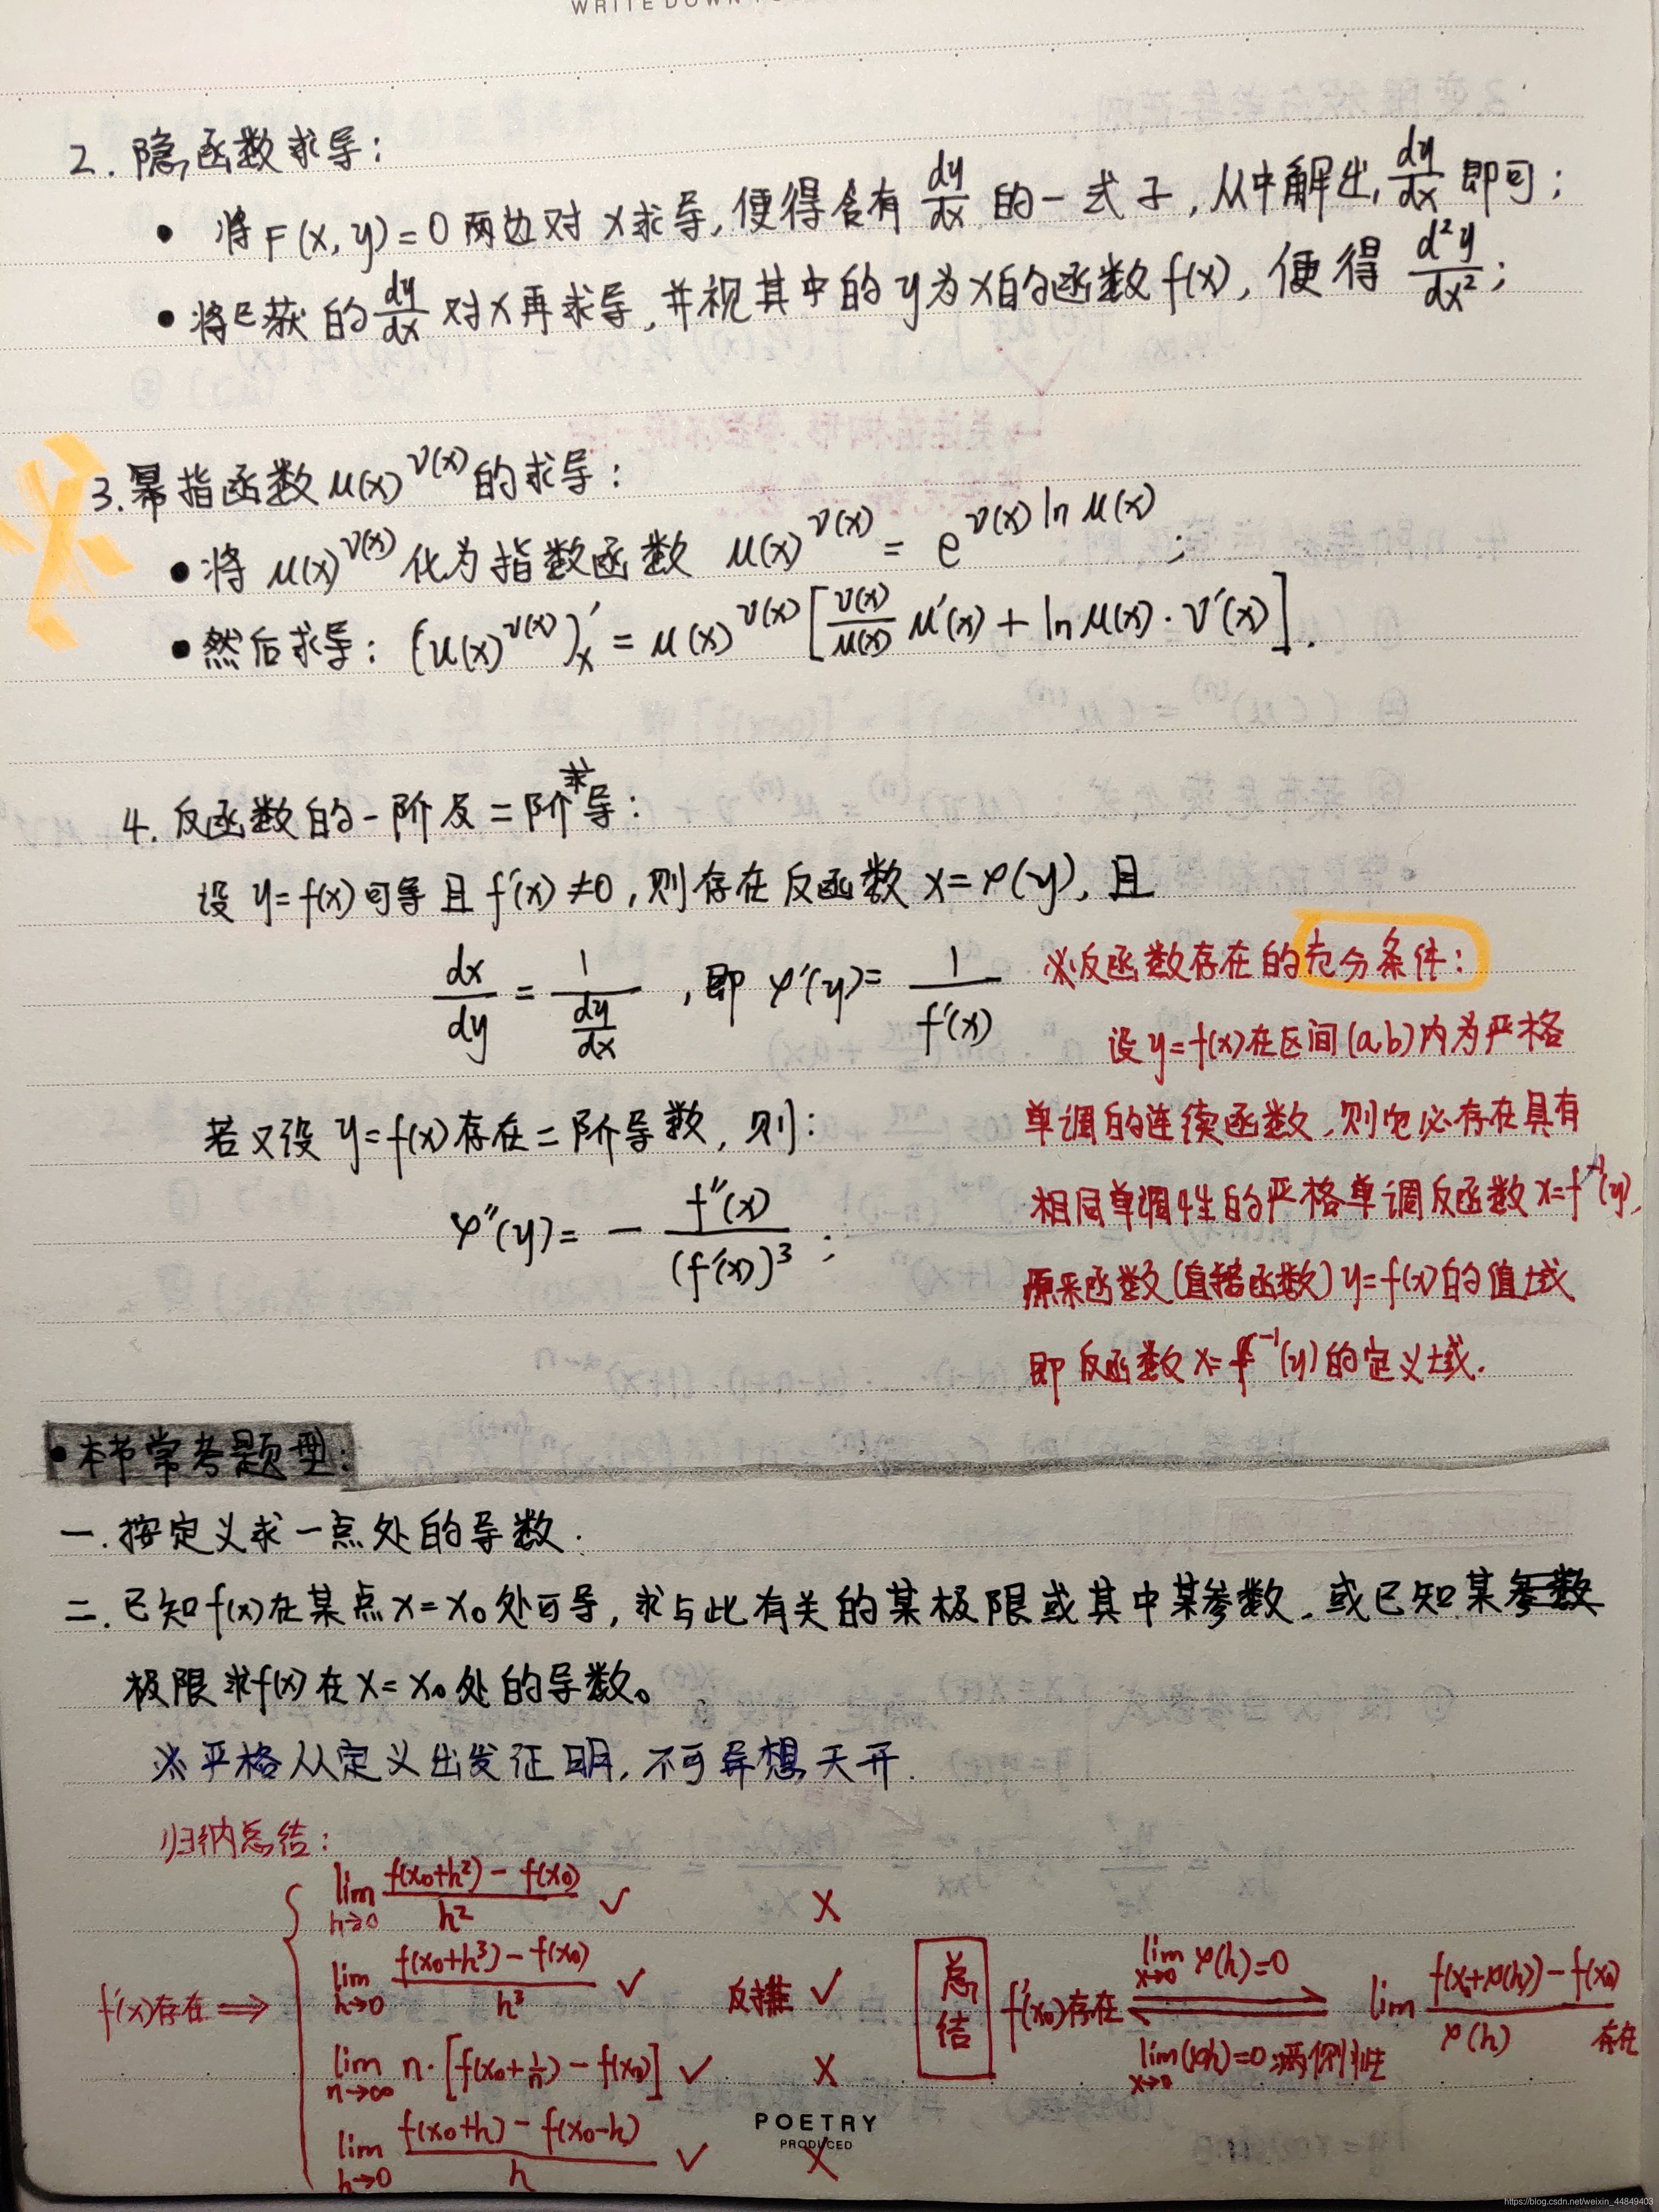 WRITE DOWN
2. 隐函数求导:
• 将F(x,y)=0两边对x求导,便得含有 dy/dx 的一式子,从中解出 dy/dx 即可;
• 将已获的 dy/dx 对x再求导,并视其中的y为x的函数f(x),便得 d²y/dx²;
3.幂指函数 u(x)^v(x) 的求导:
• 将 u(x)^v(x) 化为指数函数 u(x)^v(x) = e^(v(x) ln u(x));
• 然后求导: (u(x)^v(x))'ₓ = u(x)^v(x) [v(x)/u(x) u'(x) + ln u(x)·v'(x)].
4. 反函数的一阶及二阶求导:
设 y=f(x)可导且 f'(x)≠0,则存在反函数 x=φ(y),且
dx/dy = 1/(dy/dx) ,即 φ'(y)= 1/f'(x)
若又设 y=f(x)存在二阶导数,则:
φ''(y)= - f''(x)/(f'(x))³ ;
※反函数存在的充分条件:
设y=f(x)在区间(a,b)内为严格
单调的连续函数,则它必存在具有
相同单调性的严格单调反函数x=f⁻¹(y),
原来函数(直接函数)y=f(x)的值域
即反函数x=f⁻¹(y)的定义域.
•本节常考题型:
一.按定义求一点处的导数.
二.已知f(x)在某点x=x₀处可导,求与此有关的某极限或其中某参数.或已知某参数
极限求f(x)在x=x₀处的导数。
※严格从定义出发证明,不可异想天开.
归纳总结:
f'(x)存在 ⇒
lim h→0 (f(x₀+h²)-f(x₀))/h² ✓ X
lim h→0 (f(x₀+h³)-f(x₀))/h³ ✓ 反推 ✓
lim n→∞ n·[f(x₀+1/n)-f(x₀)] ✓ X
lim h→0 (f(x₀+h)-f(x₀-h))/h ✓ X
总结
f'(x₀)存在
lim x→0 φ(h)=0
⇌
lim x→0 φ(h)=0满足
lim (f(x₀+φ(h))-f(x₀))/φ(h) 存在
POETRY
PRODUCED
https://blog.csdn.net/weixin_44849403